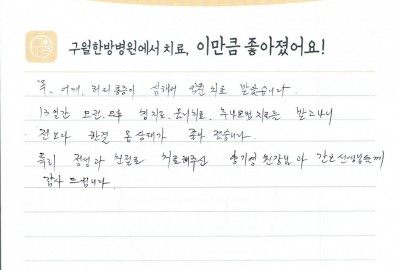 구월한방병원에서 치료, 이만큼 좋아졌어요!
목, 어깨, 허리 통증이 심해서 입원치료 받았습니다.
13일간 침치료, 물리치료, 추나요법 치료를 받고나니
전보다 한결 몸 상태가 좋아 졌습니다.
특히 정성과 친절로 치료해주신 원장님과 간호선생님들께
감사 드립니다.